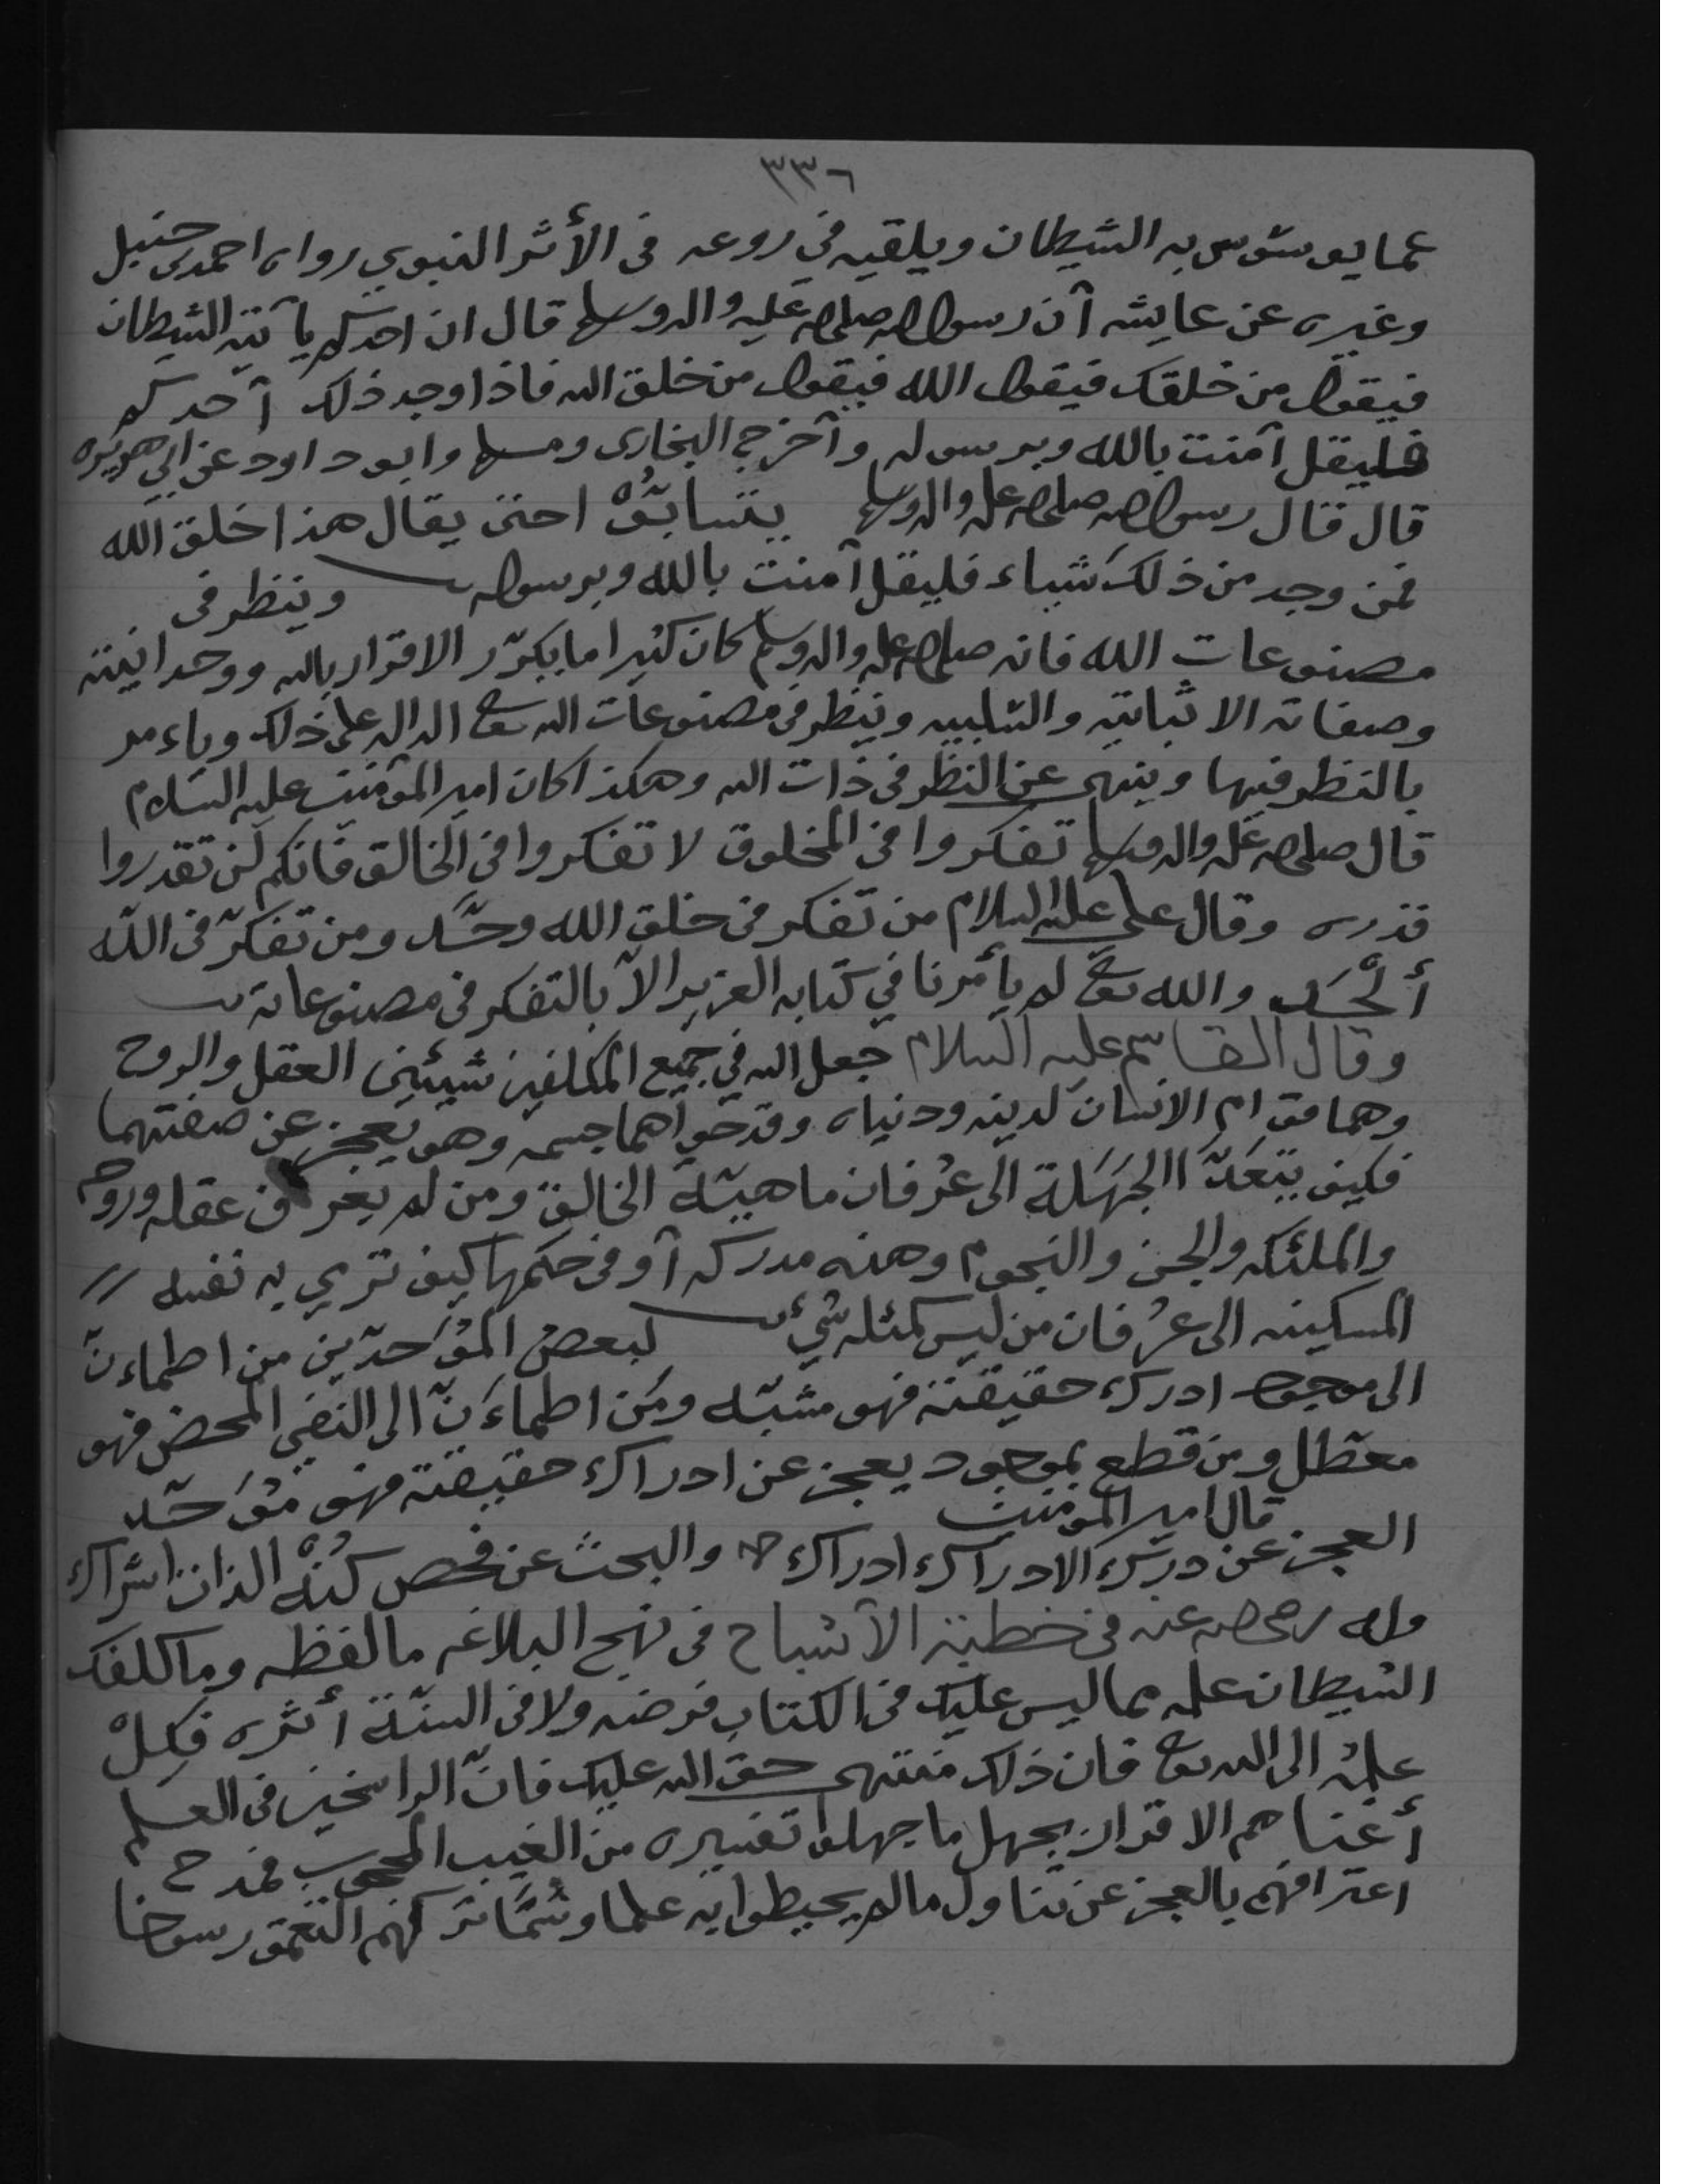 ٣٣٦
عما يوسوس به الشيطان ويلقيه في روعه في الأثر النبوي رواه احمد بن حنبل
وغيره عن عايشه أن رسول الله صلى الله عليه واله وسلم قال ان احدكم يأتيه الشيطان
فيقول من خلقك فيقول الله فيقول من خلق الله فاذا وجد ذلك أحدكم
فليقل آمنت بالله وبرسوله وأخرج البخارى ومسلم وابو داود عن ابي هريره
قال قال رسول الله صلى الله عليه واله وسلم يتسابقوا حتى يقال هذا خلق الله
فمن وجد من ذلك شياء فليقل آمنت بالله وبرسوله وينظر في
مصنوعات الله فانه صلى الله عليه واله وسلم كان كثيرا ما يكرّر الاقرار بالله ووحدانيته
وصفاته الاثباتيه والسّلبيه وينظر في مصنوعات الله تعالى الداله على ذلك وياءمر
بالنظر فيها وينهى عن النظر في ذات الله وهكذا كان امير المؤمنين عليه السلام
قال صلى الله عليه واله وسلم تفكروا في المخلوق لا تفكروا في الخالق فانكم لن تقدروا
قدره وقال علي عليه السلام من تفكر في خلق الله وحّد ومن تفكّر في الله
ألحد والله تعالى لم يأمرنا في كتابه العزيز الاّ بالتفكر في مصنوعاته
وقال القاسم عليه السلام جعل الله في جميع المكلفين شيئين العقل والروح
وهما قوام الانسان لدينه ودنياه وقد حواهما جسمه وهو يعجز عن صفتهما
فكيف يتعدّا الجهلة الى عرفان ماهيّة الخالق ومن لم يعرف عقله وروحه
والملئكه والجن والنجوم وهذه مدركه أو في حكمها كيف ترمي به نفسه
المسكينه الى عرفان من ليس كمثله شيء لبعض المؤحدّين من اطماءنّ
الى موجود ادرك حقيقته فهو مشبّه ومن اطماءَنّ الى النفي المحض فهو
معطّل ومن قطع بموجود يعجز عن ادراك حقيقته فهو مؤحّد
قال امير المؤمنين
العجز عن درك الادراك ادراك والبحث عن فحص كُنْه الذات اشراك
وله رضي الله عنه في خطبة الأشباح في نهج البلاغه ما لفظه وما كلفك
الشيطان علمه مما ليس عليك في الكتاب فرضه ولا في السنّة أثره فكِلْ
علمه الى الله تعالى فان ذلك منتهى حق الله عليك فانّ الراسخين في العلم
أغناهم الاقرار بجهل ما جهلوا تفسيره من الغيب المحجوب فمدح
اعترافهم بالعجز عن تناول مالم يحيطوا به علما وسُمّا تركهم التعمق رسوخا